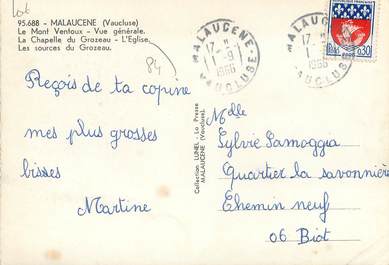 Lob
95.688 - MALAUCENE (Vaucluse)
Le Mont Ventoux - Vue générale.
La Chapelle du Grozeau - L'Eglise.
Les sources du Grozeau.
84
MALAUCENE
17 H
1-9
1966
VAUCLUSE
MALAUCENE
17 H
1-9
1966
VAUCLUSE
0,30
Reçois de ta copine
mes plus grosses
bisses
Martine
Collection LUNEL - La Presse
MALAUCENE (Vaucluse).
Mdlle
Sylvie Samoggia
Quartier la savonnière
Chemin neuf
06 Biot